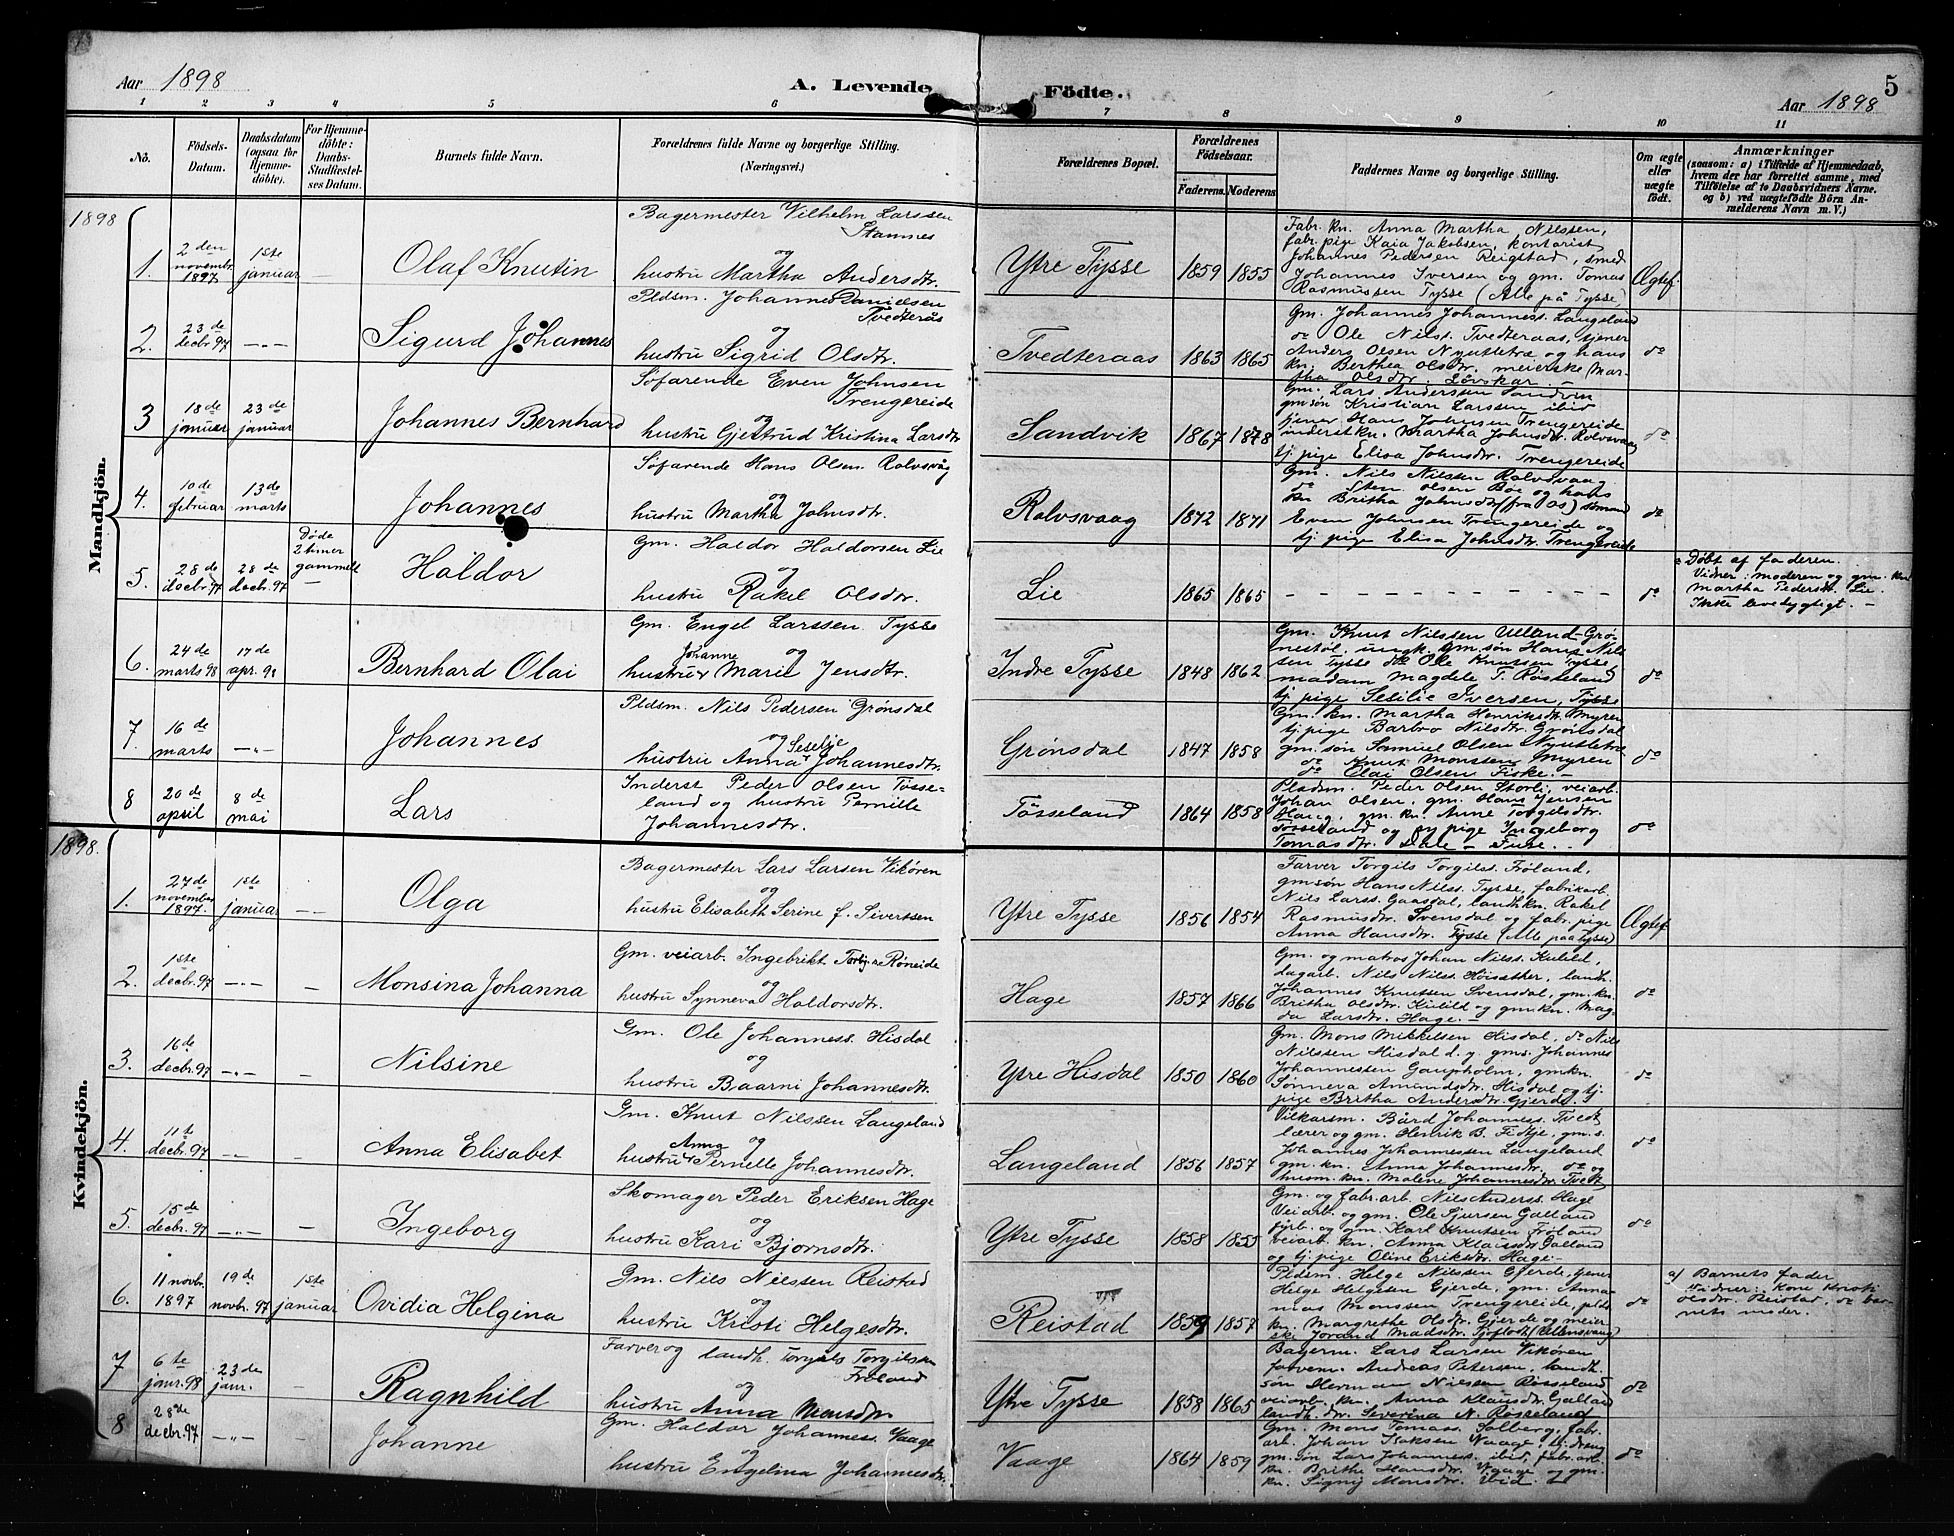 Aar 1898
A. Levende Födte.
5
Aar 1898
1 2 3 4 5 6 7 8 9 10 11
No.
Födsels-Datum.
Daabsdatum (ogsaa for Hjemme-döbte).
For Hjemme-döbte: Daabs-Stadfæstel-ses Datum.
Barnets fulde Navn.
Forældrenes fulde Navne og borgerlige Stilling. (Næringsvei.)
Forældrenes Bopæl.
Forældrenes Födselsaar.
Faderens. Moderens
Faddernes Navne og borgerlige Stilling.
Om ægte eller uægte födt.
Anmærkninger
(saasom: a) i Tilfælde af Hjemmedaab,
hvem der har forrettet samme, med
Tilföielse af to Daabsvidners Navne.
og b) ved uægtefödte Börn An-
melderens Navn m. V.)
1898
Mandkjön.
1. 2den novembr. 1897 1ste januar — Olaf Knutin
Bagermester Vilhelm Larssen
Stamnes
og
hustru Martha Andersdtr.
Ytre Tysse 1859 1855
Fabr. kn. Anna Martha Nilssen,
fabr. pige Kaia Jakobsen, kontorist
Johannes Pedersen Reigstad, smed
Johannes Iversen og gm. Tomas
Rasmussen Tysse (Alle på Tysse)
Ægtef.
2. 23de decbr. 97 —"— Sigurd Johannes
Pldsm. Johannes Danielsen
Tvedterås
og
hustru Sigrid Olsdtr.
Tvedteraas 1863 1865
Gm. Johannes Johanness. Langeland
do Ole Nilss. Tvedteraas, tjener
Anders Olsen Nyutletræ og hans
kn. Berthea Olsdtr. meierske Mar-
tha Olsdtr. Løvskar. —
do
3 18de januar 23de januar Johannes Bernhard
Søfarende Even Johnsen
Trengereide
og
hustru Gjertrud Kristina Larsdtr
Sandvik 1867 1878
Gm. Lars Anderssen Sandven
gmsøn Kristian Larssen ibid
tjener Hans Johnsen Trengereide
inderstkn. Martha Johnsdtr. Rolvsvaag
tj. pige Elisa Johnsdtr. Trengereide
do
4. 10de februar 13de marts Johannes
Søfarende Hans Olsen Rolvsvåg
og
hustru Martha Johnsdtr.
Rolvsvaag 1872 1871
Gm. Nils Nilssen Rolvsvaag
do Sten Olsen Bøe og hans
kn Britha Johnsdtr (fra Os) sømand
Even Johnsen Trengereide og
tj. pige Elisa Johnsdtr. Trengereide
do
5. 28de decbr. 97 28de decbr. 97 Døde 2 timer gammelt — Haldor
Gm. Haldor Haldorsen Lie
og
hustru Rakel Olsdtr.
Lie 1865 1865 — — — — — do
Døbt af faderen.
Vidner: moderen og gm. kn
Martha Pedersdt. Lie.
Ikke levedygtigt. —
6. 24de marts 98 17de apr. 98 Bernhard Olai
Gm. Engel Larssen Tysse
Johanne og
hustru Marie Jensdtr.
Indre Tysse 1848 1862
Gm. Knut Nilssen Ulland-Grø-
nestøl, ungk. gm. søn Hans Nils-
sen Tysse do Ole Knutssen Tysse
madam Magdele T. Røsseland
tj. pige Selilie Iversen, Tysse
do
7. 16de marts —"— Johannes
Pldsm. Nils Pedersen Grønsdal
og Seselje
hustru Anna Johannesdtr.
Grønsdal 1847 1858
Gm. kn. Martha Henriksdtr. Myren
tj. pige Barbro Nilsdtr. Grønsdal
gm. søn Samuel Olsen Nyutletræ
do Knut Monssen Myren
do Olai Olsen Fiske. —
do
8 20de april 8de mai Lars
Inderst Peder Olsen Tøsse-
land og hustru Pernille
Johannesdtr.
Tøsseland 1864 1858
Pladsm. Peder Olsen Storli, veiarb.
Johan Olsen, gm. Hans Jensen
Haug, gm. kn. Anne Torgilsdtr.
Tøsseland og tj. pige Ingeborg
Tomasdtr. Dale — Fuse. —
do
1898.
Kvindekjön.
1. 27de november 1897. 1ste januar — Olga
Bagermester Lars Larsen Vikøren
og
hustru Elisabeth Serine f. Sivertsen
Ytre Tysse 1856 1854
Farver Torgils Torgilss. Frøland,
gmsøn Hans Nilss. Tysse, fabrikarb.
Nils Larss. Gaasdal, landhkn. Rakel
Rasmusdtr. Svensdal og fabr. pige
Anna Hansdtr. Tysse (Alle paa Tysse)
Ægtef
2. 1ste decbr. 97 —"— — Monsina Johanna
Gm. veiarb. Ingebrikt Torbj. Røneide
og
hustru Synneva Haldorsdtr.
Hage 1857 1866
Gm. og matros Johan Nilss. Kulild,
dagarb. Nils Nilss. Høisæther, landh.
Johannes Knutssen Svensdal, gm. kn.
Britha Olsdtr. Kulild og gmkn. Mag-
da Larsdtr. Hage. —
do
3. 16de decbr. 97 —"— — Nilsine
Gm. Ole Johanness. Hisdal
og
hustru Baarni Johannesdtr.
Ytre Hisdal 1850 1860
Gm. Mons Mikkelsen Hisdal, do Nils
Nilssen Hisdal d. y. gms. Johannes
Johannessen Gaupholm, gmkn.
Sønneva Amundsdtr. Hisdal og tj.
pige Britha Andersdtr. Gjerde.
do
4. 11te decbr. 97 —"— — Anna Elisabet
Gm. Knut Nilssen Langeland
Anna og
hustru Pernelle Johannesdtr.
Langeland 1856 1857
Vilkarsm. Bård Johanness. Tvedt
lærer og gm. Henrik B. Fidtje, gm. s.
Johannes Johannessen Langeland
gm. kn. Anna Johannesdtr. do og
husm. kn. Malene Johannesdtr. Tvedt
do
5. 15de decbr. 97 —"— — Ingeborg
Skomager Peder Eriksen Hage
og
hustru Kari Bjørnsdtr.
Ytre Tysse 1858 1855
Gm. og fabr. arb. Nils Anderss. Hage
Veiarb. og gm. Ole Sjursen Galland
fyrb. og gm. Karl Knutsen Frøland
veiarb. kn. Anna Klausdtr. Galland
og tj. pige Oline Eriksdtr. Hage.
do
6. 11 novbr. 1897 19de novbr. 97 1ste januar Ovidia Helgina
Gm. Nils Nilssen Reistad
og
hustru Kristi Helgesdtr.
Reistad 1859 1857
Pldsm. Helge Nilssen Gjerde, tjener
Helge Helgesen Gjerde, gm. Anna-
nias Monssen Trengereide, plds.
kn. Margrethe Olsdtr. Gjerde og meier-
ske Jorand Madsdtr. Tjoflodt (Ullensvang)
do
a) Barnets fader
Vidner: Kone Kristi
Olsdtr. Reistad, do bar-
nets moder.
7 6te janr. 98 23de janr. — Ragnhild
Farver og landh. Torgils Torgilssen
Frøland
og
hustru Anna Monsdtr
Ytre Tysse 1858 1865
Bagerm. Lars Larsen Vikøren
farverm. Andreas Petersen, landh.
søn Herman Nilssen Røsseland
veiarb. kn. Anna Klausdtr. Galland
landh. dtr. Severina N. Røsseland
do
8 28de decbr. 97 —"— — Johanne
Gm. Haldor Johanness. Vaage
og
hustru Engelina Johannesdtr.
Vaage 1864 1859
Gm. Mons Tomass. Solberg, fabr.
arb. Johan Isaksen Vaage, tj. dreng
gm. søn Lars Johanness. ibid, fabr. arb.
kn. Brithe Hansdtr. Vaage og gm.
kn. Signij Monsdtr. ibid —
do